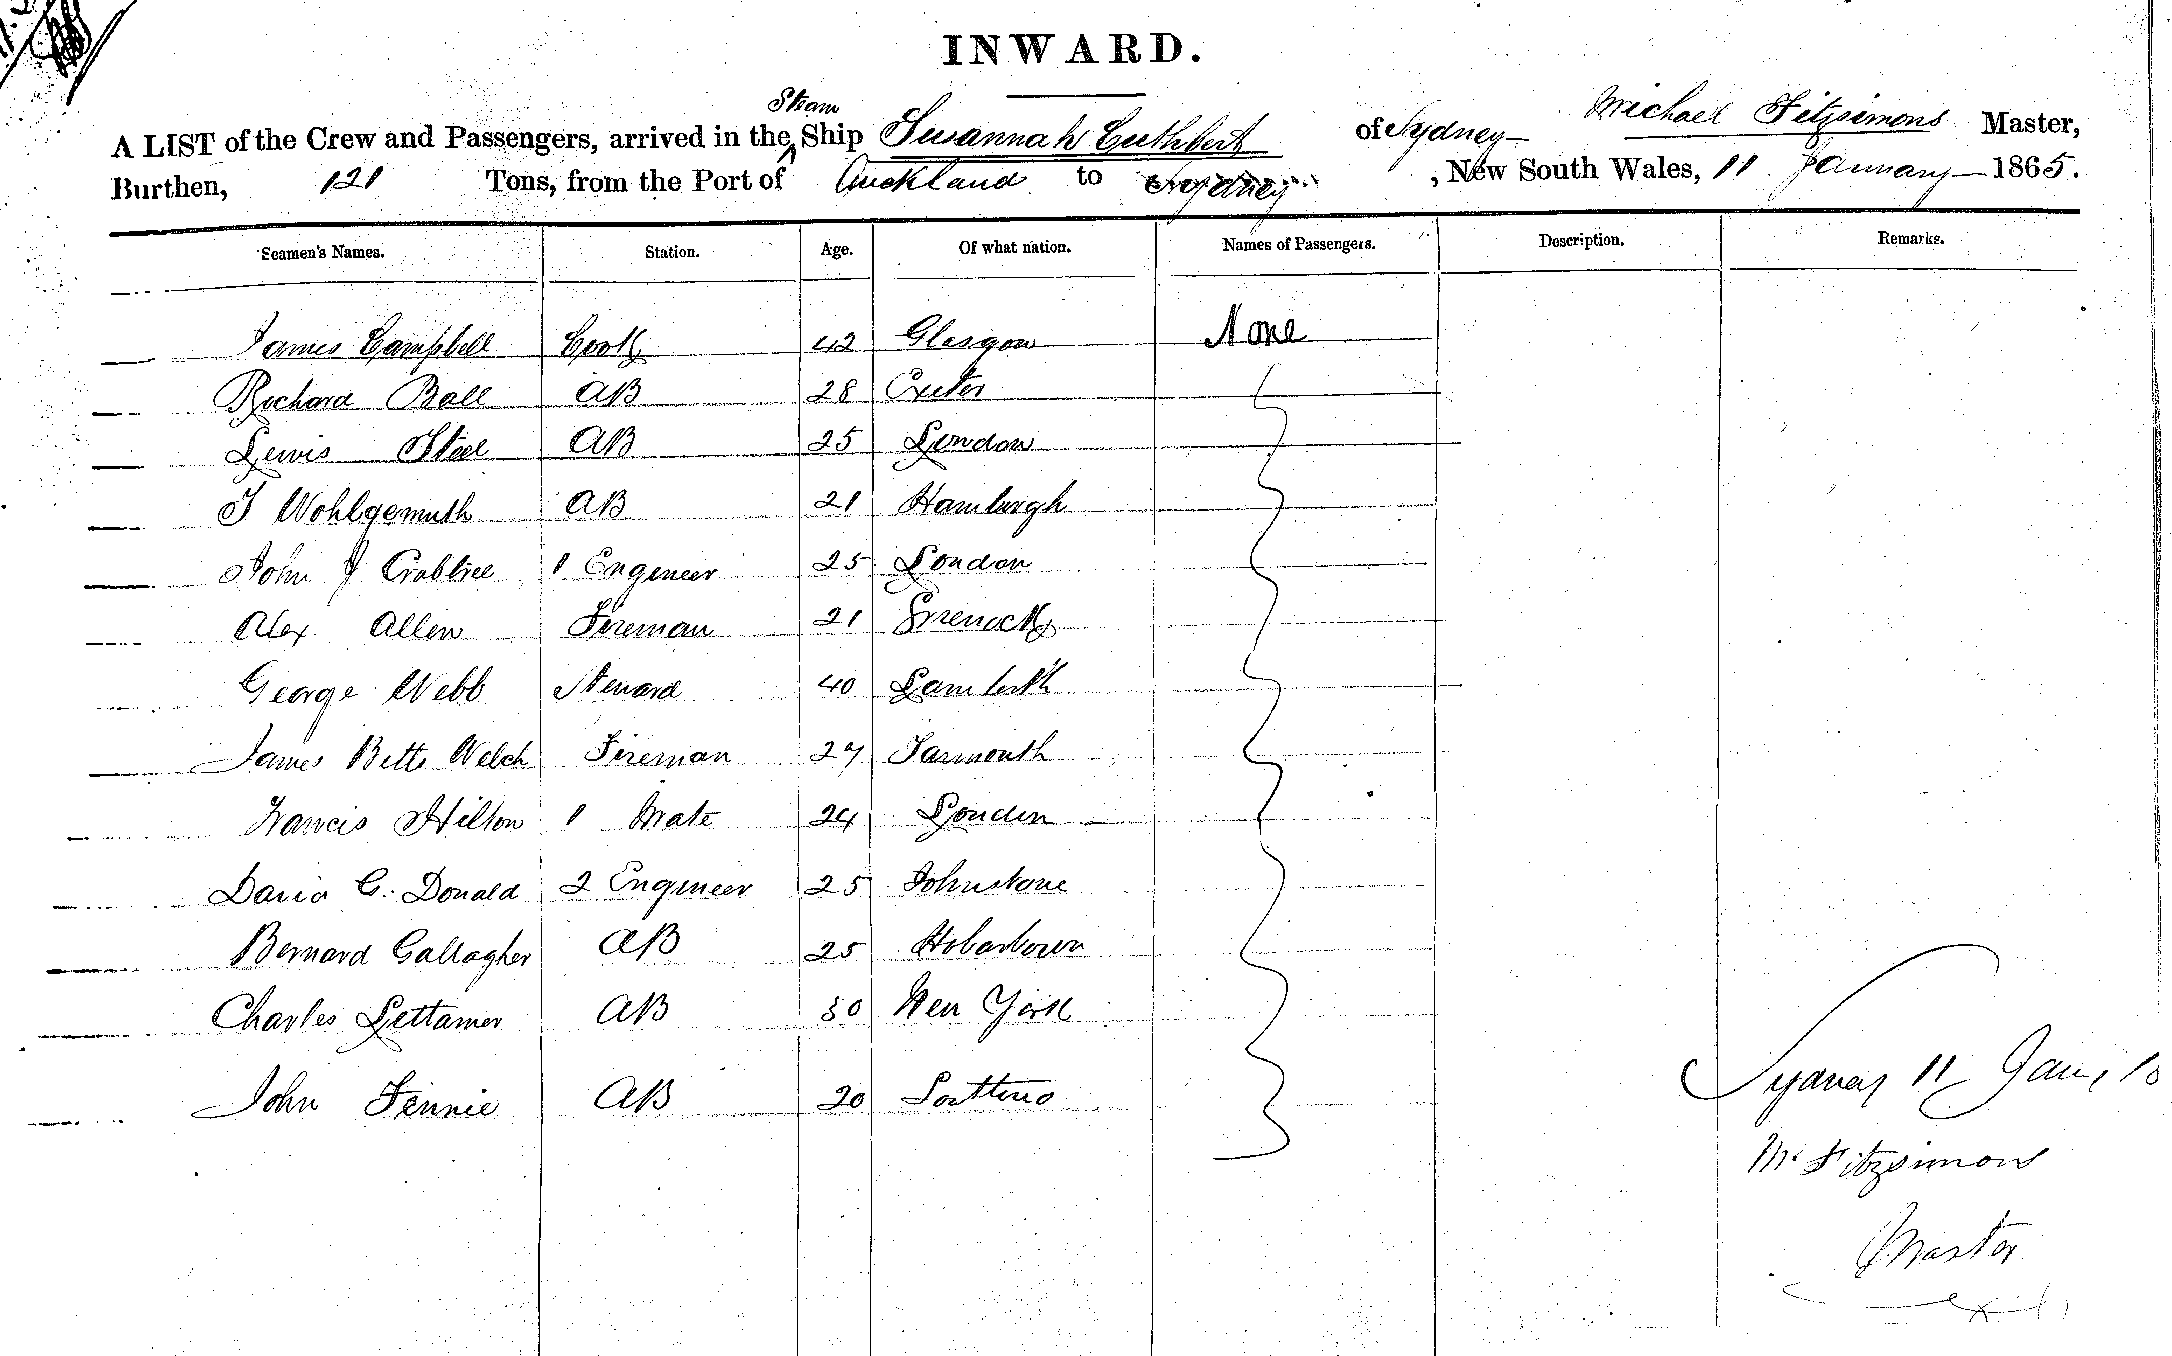 INWARD.
Steam
A LIST of the Crew and Passengers, arrived in the Ship Susannah Cuthbert of Sydney Michael Fitzsimons Master,
Burthen, 121 Tons, from the Port of Auckland to Sydney , New South Wales, 11 January 1865.
Seamen's Names. Station. Age. Of what nation. Names of Passengers. Description. Remarks.
James Campbell Cook 42 Glasgow None
Richard Ball AB 28 Exeter
Lewis Steel AB 25 London
J Wohlgemuth AB 21 Hamburgh
John J Crabtree 1 Engeneer 25 London
Alex Allen Fireman 21 Greenock
George Webb Steward 40 Lambeth
James Betts Welch Fireman 27 Yarmouth
Francis Hilton 1 Mate 24 London
David C. Donald 2 Engineer 25 Johnstone
Bernard Gallagher AB 25 Hobartown
Charles Lettamer AB 30 New York
John Fennie AB 20
Sydney 11 Jany
M Fitzsimons
Master